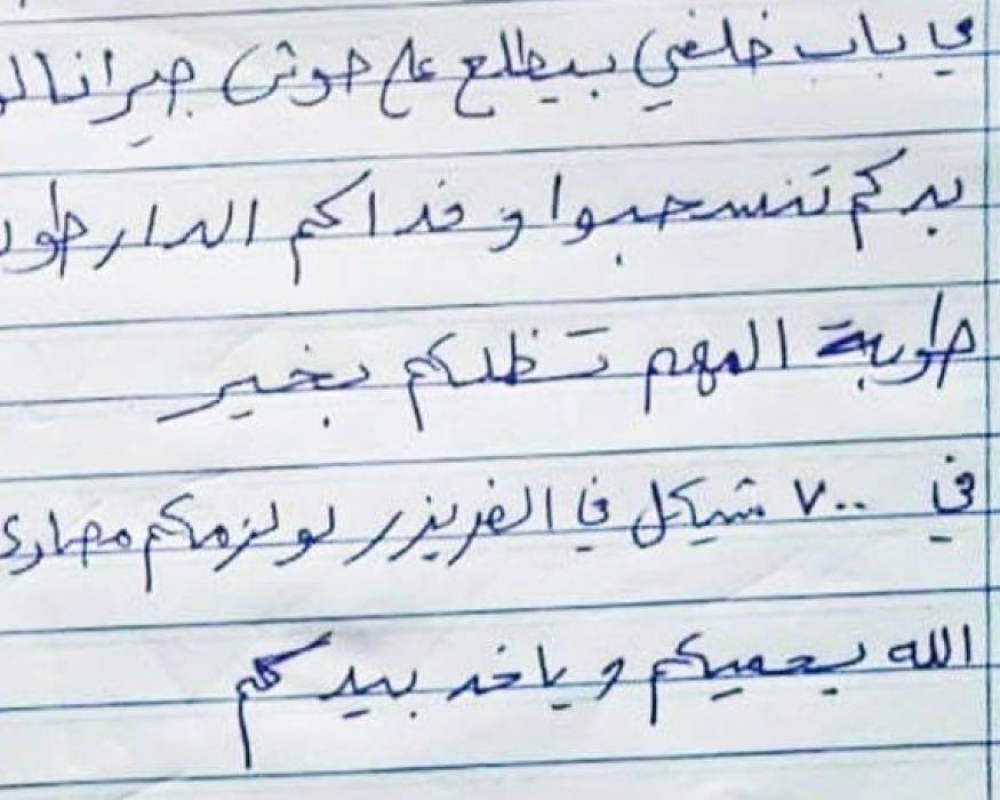 في باب خلفي بيطلع على حوش جيرانا لو
بدكم تنسحبوا وفداكم الدار طوبة
طوبة المهم تظلكم بخير
في ٧٠٠ شيكل في الفريزر لو لزمكم مصاري
الله يحميكم وياخد بيدكم